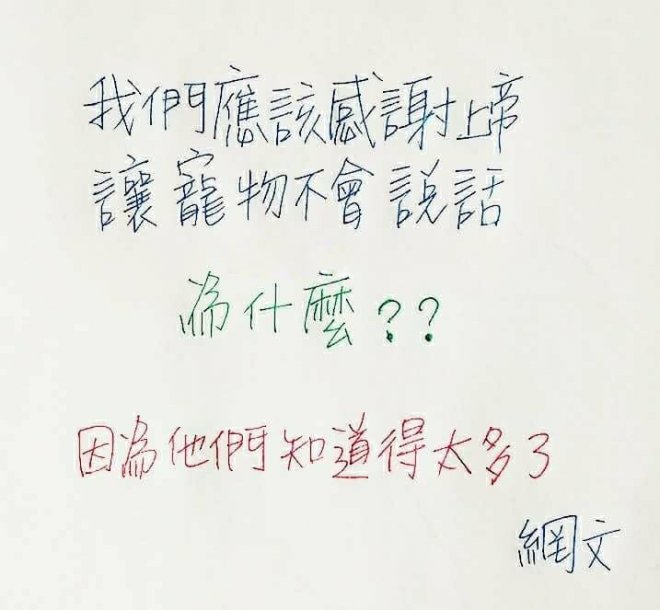 我們應該感謝上帝
讓寵物不會說話
為什麼??
因為他們知道得太多了
網文